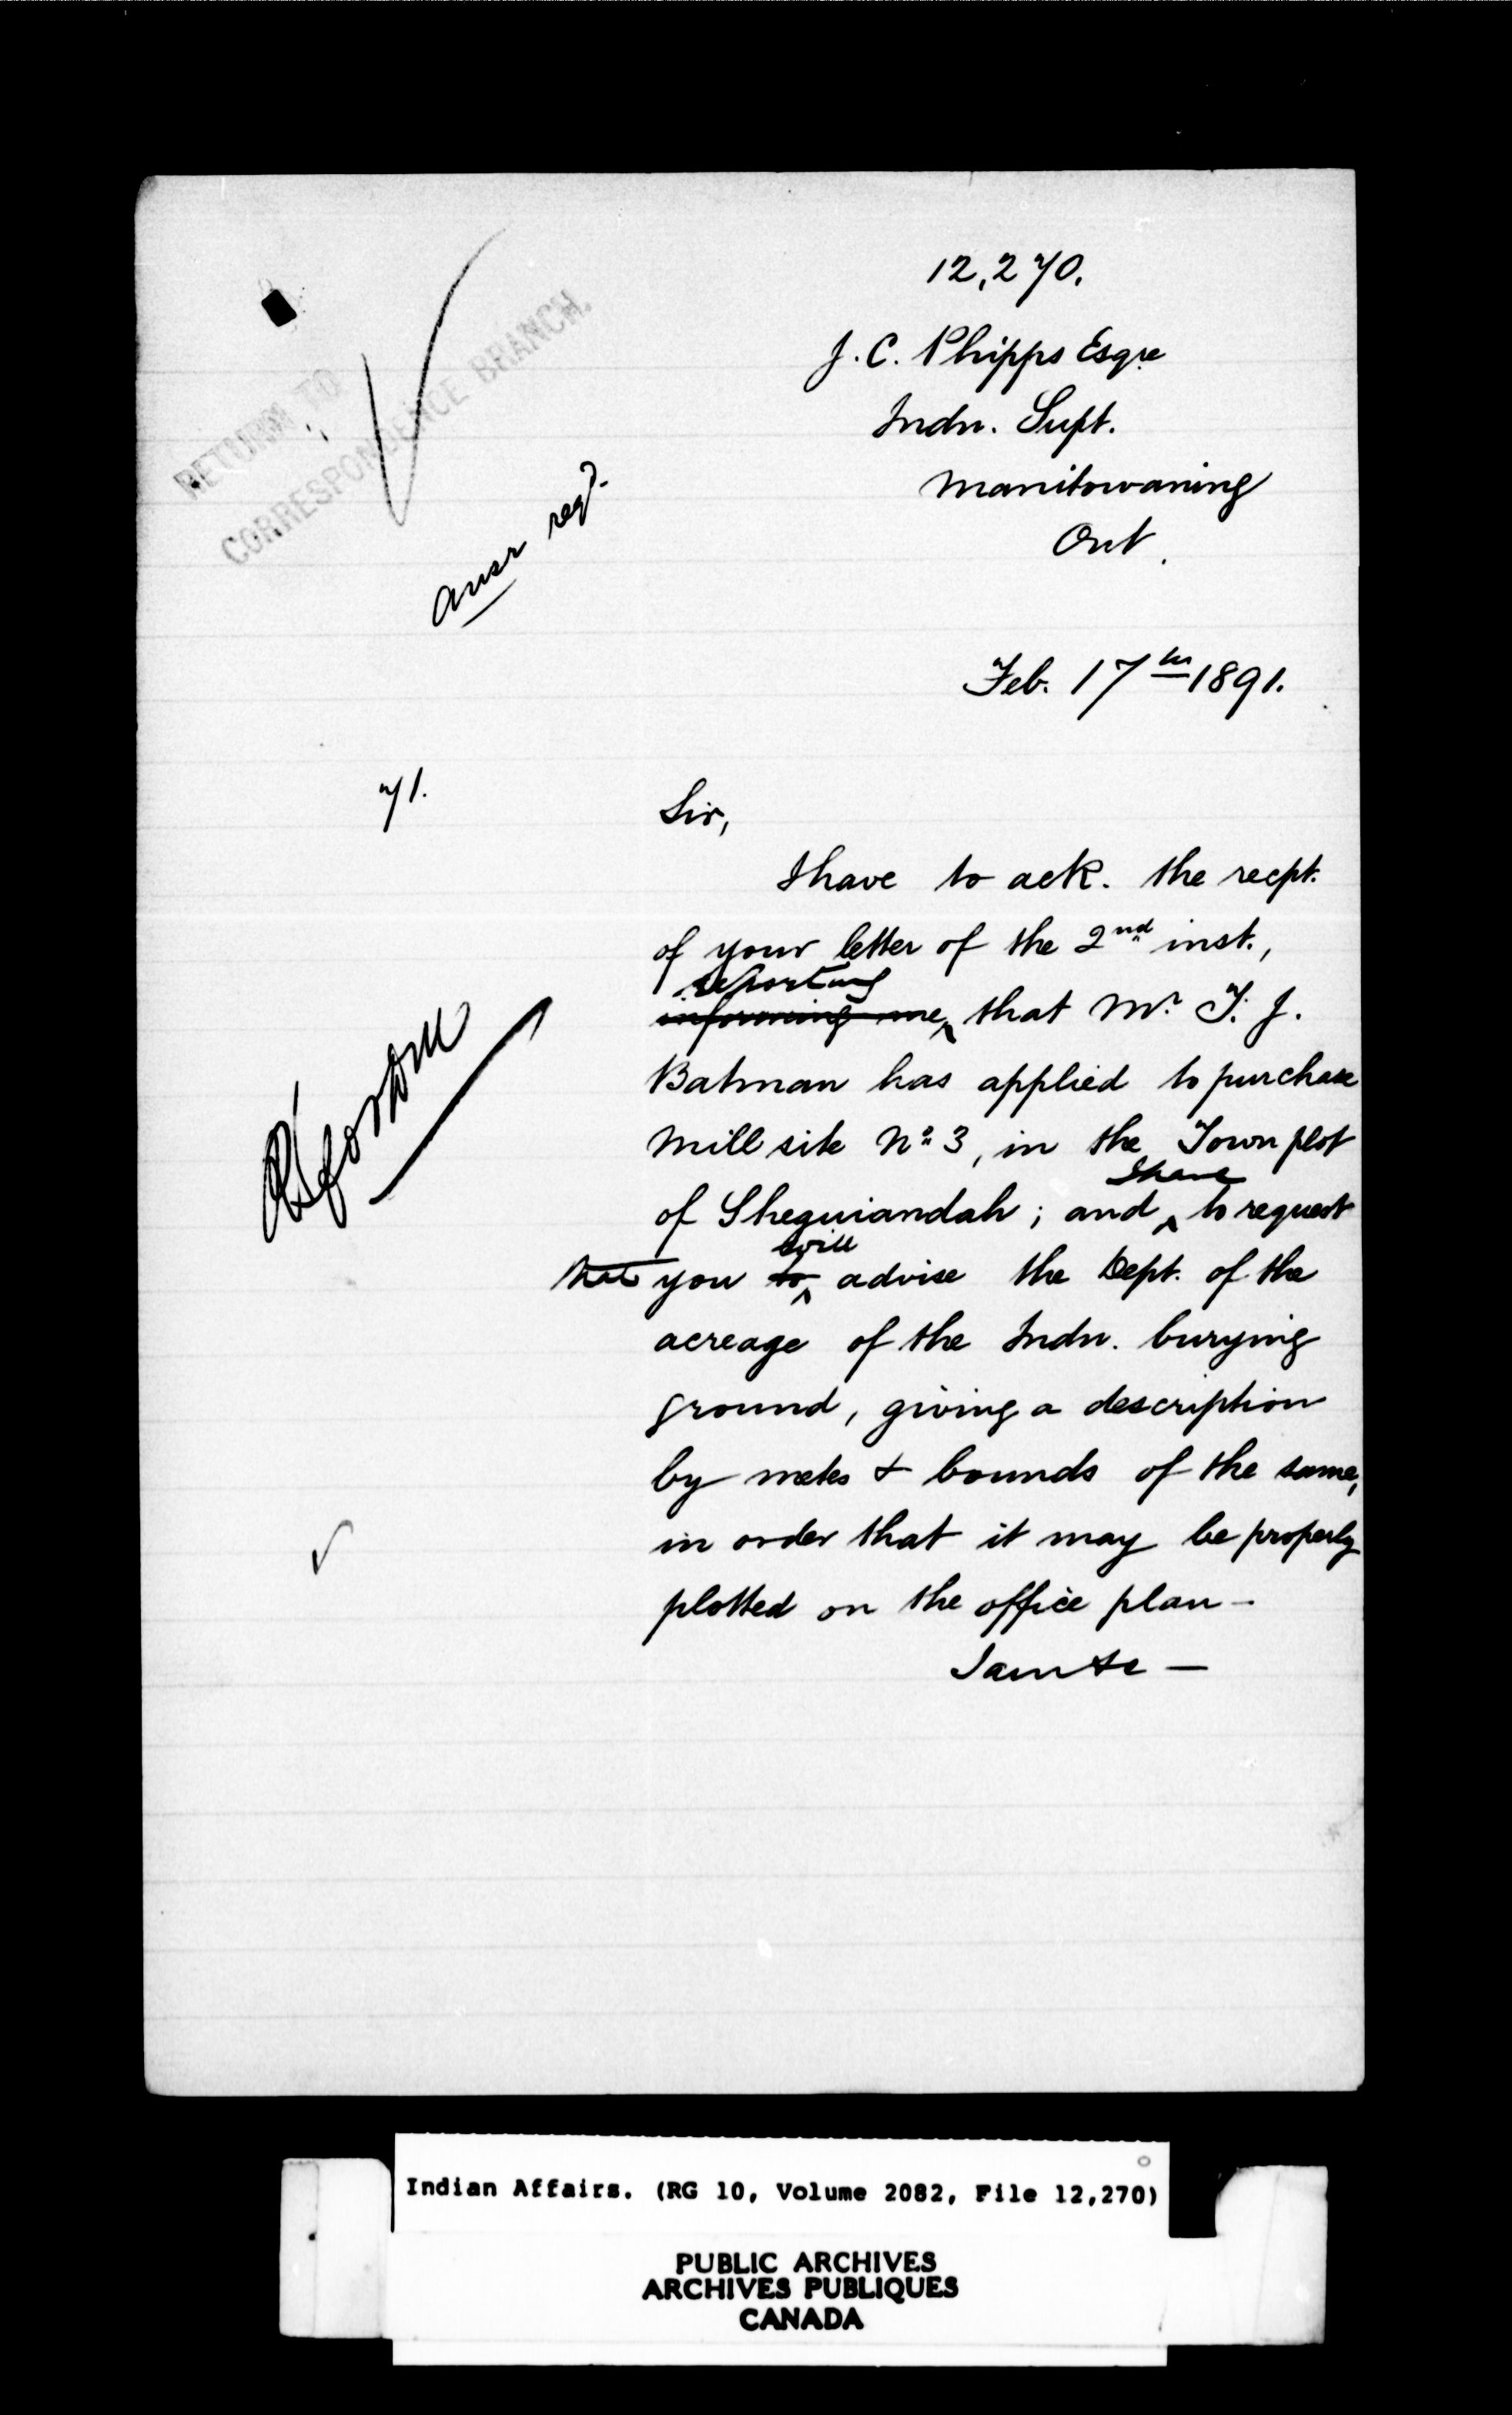 12,270.
J. C. Phipps Esqre
Indn. Supt.
Manitowaning
Ont.
RETURN TO
CORRESPONDENCE BRANCH.
ansr reqd.
Feb. 17th 1891.
71.
Sir,
I have to ack. the recpt.
of your letter of the 2nd inst.,
reporting
informing me that Mr. T. J.
Batman has applied to purchase
Mill site No. 3, in the Town plot
I have
of Sheguiandah; and to request
will
that you to advise the Dept. of the
acreage of the Indn. burying
ground, giving a description
by metes & bounds of the same,
in order that it may be properly
plotted on the office plan -
I am &c —
Indian Affairs. (RG 10, Volume 2082, File 12,270)
PUBLIC ARCHIVES
ARCHIVES PUBLIQUES
CANADA